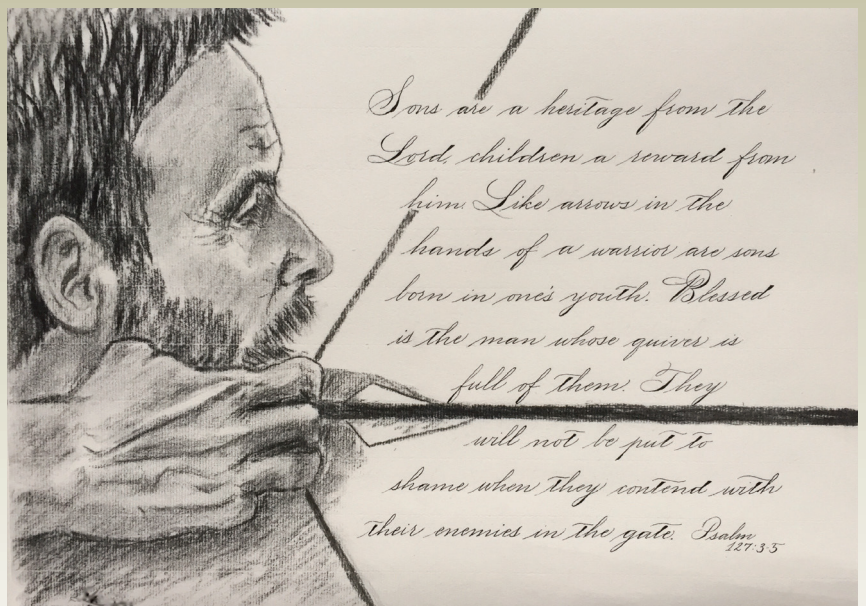 Sons are a heritage from the
Lord, children a reward from
him. Like arrows in the
hands of a warrior are sons
born in one's youth. Blessed
is the man whose quiver is
full of them. They
will not be put to
shame when they contend with
their enemies in the gate. Psalm
127:3-5